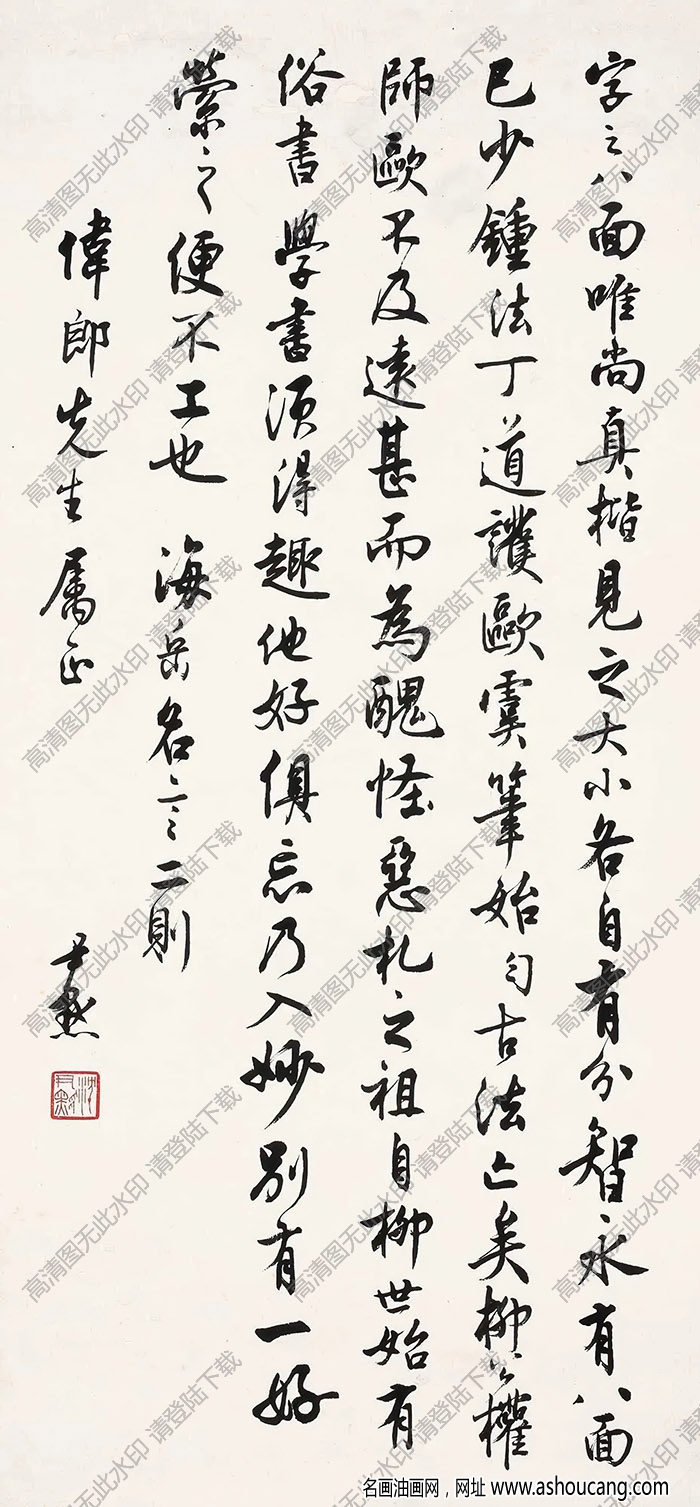 字之八面唯尚真楷見之大小各自有分智永有八面
已少鍾法丁道護歐虞筆始勻古法亡矣柳公權
師歐不及遠甚而為醜怪惡札之祖自柳世始有
俗書學書須得趣他好俱忘乃入妙別有一好
縈之便不工也 海岳名言二則
偉郎先生屬正
尹默
沈尹默
高清图无此水印 请登陆下载
名画油画网，网址 www.ashoucang.com